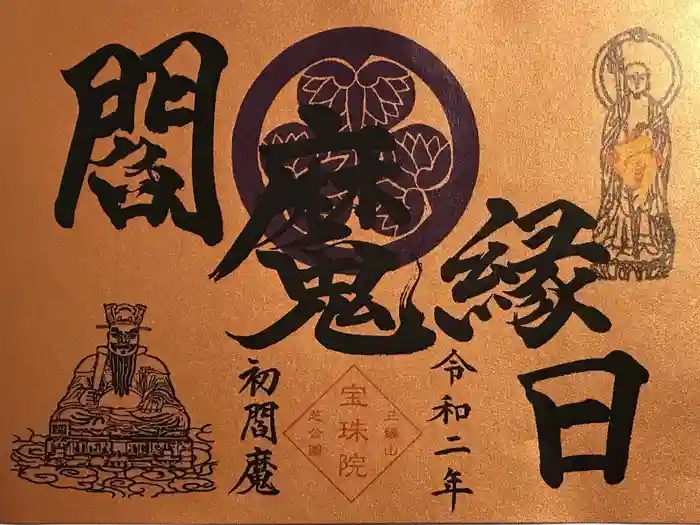 閻魔縁日
令和二年
初閻魔
三縁山
宝珠院
芝公園